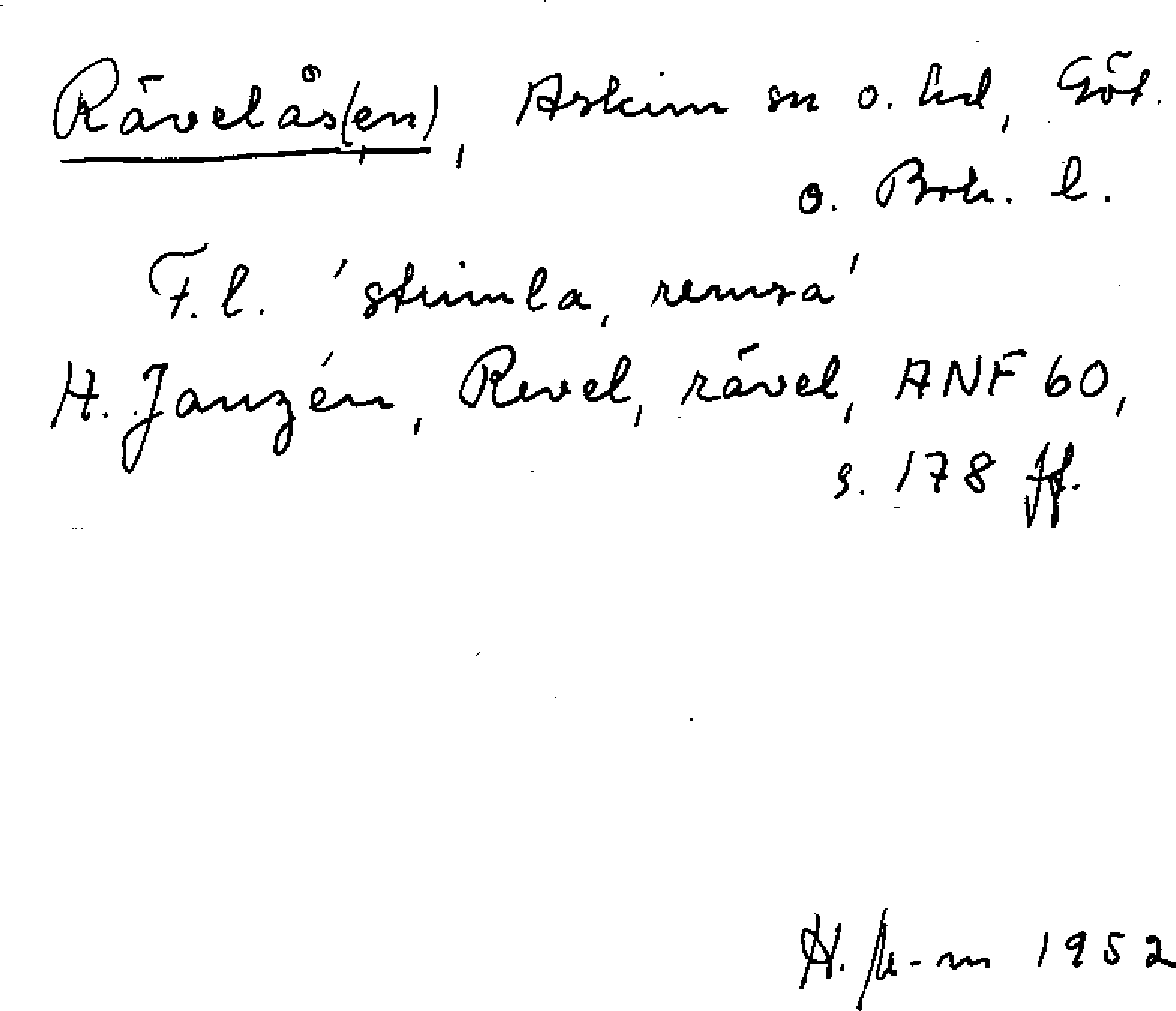 Rävelås(en), Askim sn o. hd, Göt.
o. Boh. l.
F.l. 'strimla, remsa'
H. Janzén, Revel, rävel, ANF 60,
s. 178 ff.
H. 1952